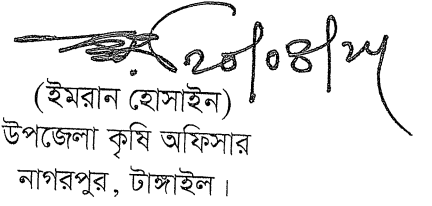 ২০/০৪/২৫
(ইমরান হোসাইন)
উপজেলা কৃষি অফিসার
নাগরপুর, টাঙ্গাইল।